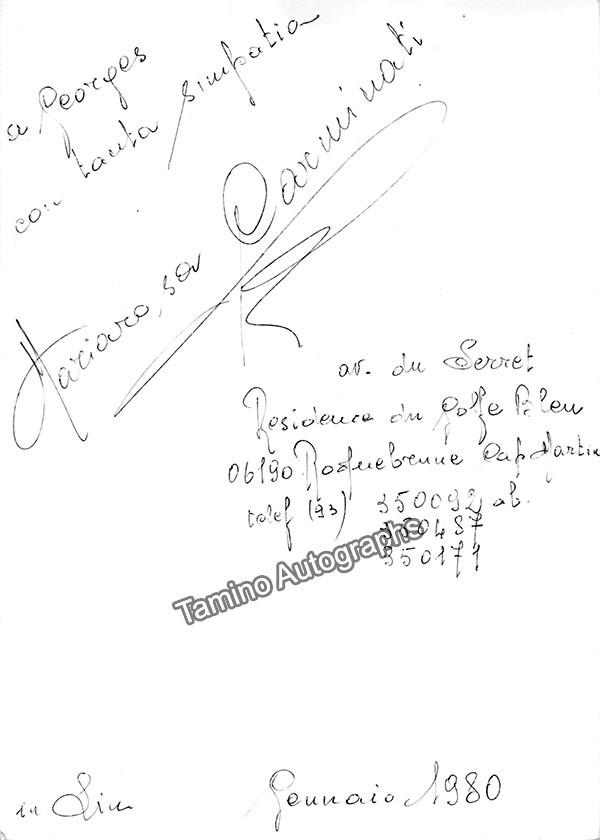 a Georges
con tanta simpatia
Mariarosa Carminati
av. du Serret
Residence du Golfe Bleu
06190 Roquebrune Cap Martin
telef (93) 350092 ab.
350487
350171
Tamino Autographs
in
Gennaio 1980